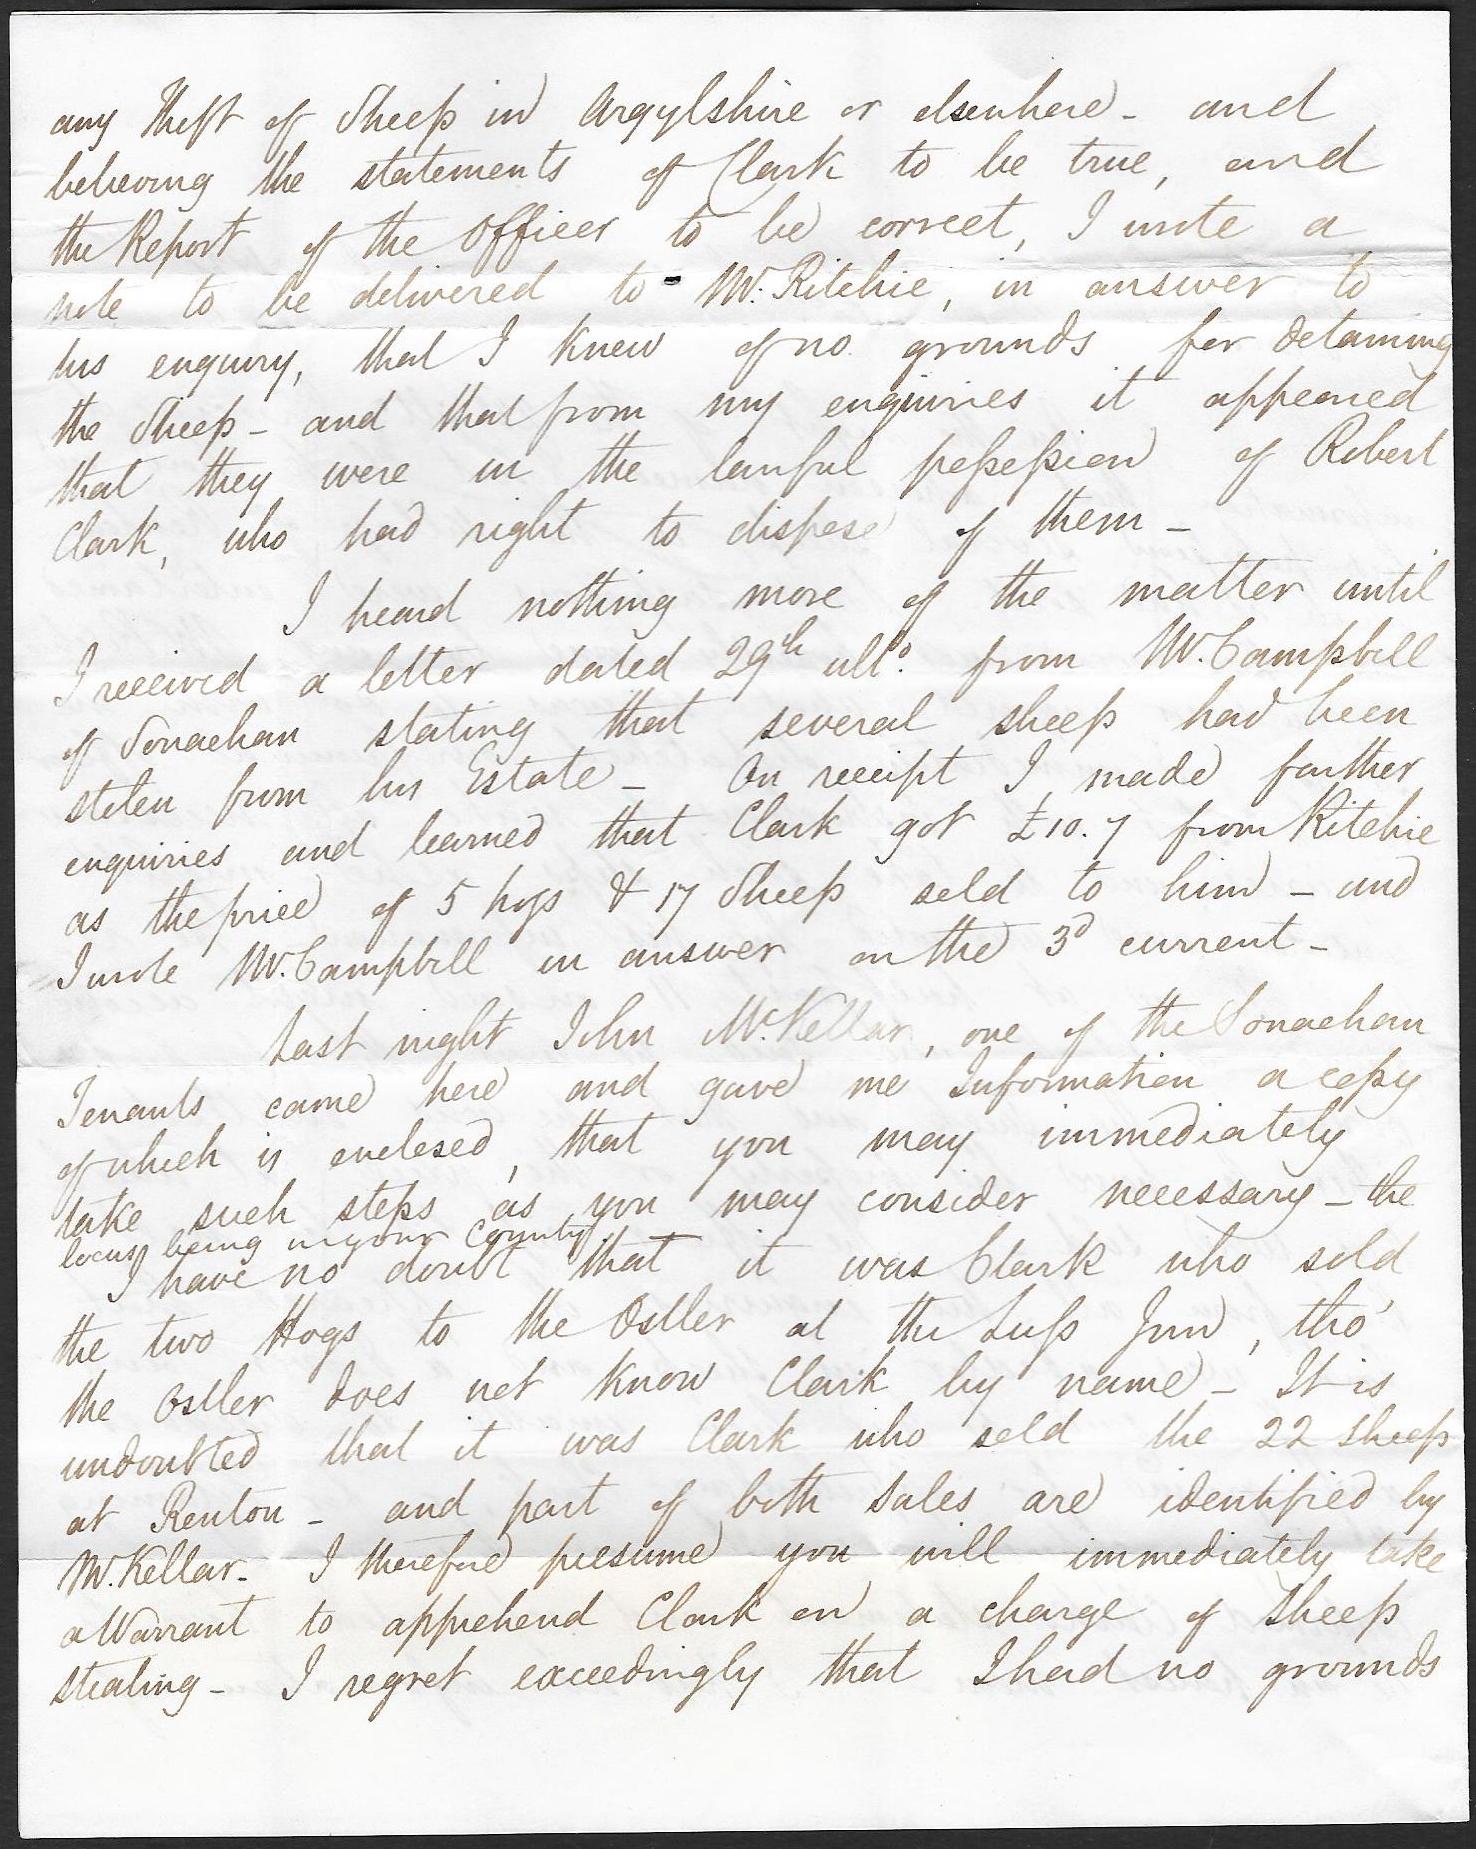 any theft of Sheep in Argylshire or elsewhere - and
believing the statements of Clark to be true, and
the Report of the Officer to be correct, I wrote a
note to be delivered to Mr. Ritchie, in answer to
his enquiry, that I knew of no grounds for detaining
the Sheep - and that from my enquiries it appeared
that they were in the lawful possession of Robert
Clark, who had right to dispose of them -
I heard nothing more of the matter until
I received a letter dated 29th ulto. from Mr. Campbell
of Sonachan stating that several sheep had been
stolen from his Estate - On receipt I made farther
enquiries and learned that Clark got £10.7 from Ritchie
as the price of 5 hogs & 17 Sheep sold to him - and
I wrote Mr. Campbell in answer on the 3d current -
Last night John McKellar, one of the Sonachan
Tenants came here and gave me Information a copy
of which is enclosed, that you may immediately
take such steps as you may consider necessary - the
locus being in your County
I have no doubt that it was Clark who sold
the two Hogs to the Ostler at the Luss Inn, tho'
the Ostler does not know Clark by name - It is
undoubted that it was Clark who sold the 22 Sheep
at Renton - and part of both Sales are identified by
McKellar - I therefore presume you will immediately take
a Warrant to apprehend Clark on a charge of Sheep
Stealing - I regret exceedingly that I had no grounds